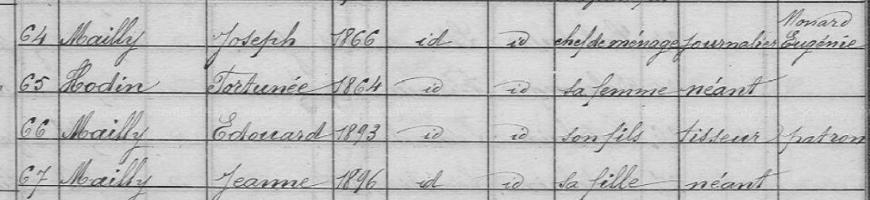 Monard
64 Mailly Joseph 1866 id id chef de ménage journalier Eugénie
65 Hodin Fortunée 1864 id id sa femme néant
66 Mailly Edouard 1893 id id son fils tisseur patron
67 Mailly Jeanne 1896 id id sa fille néant